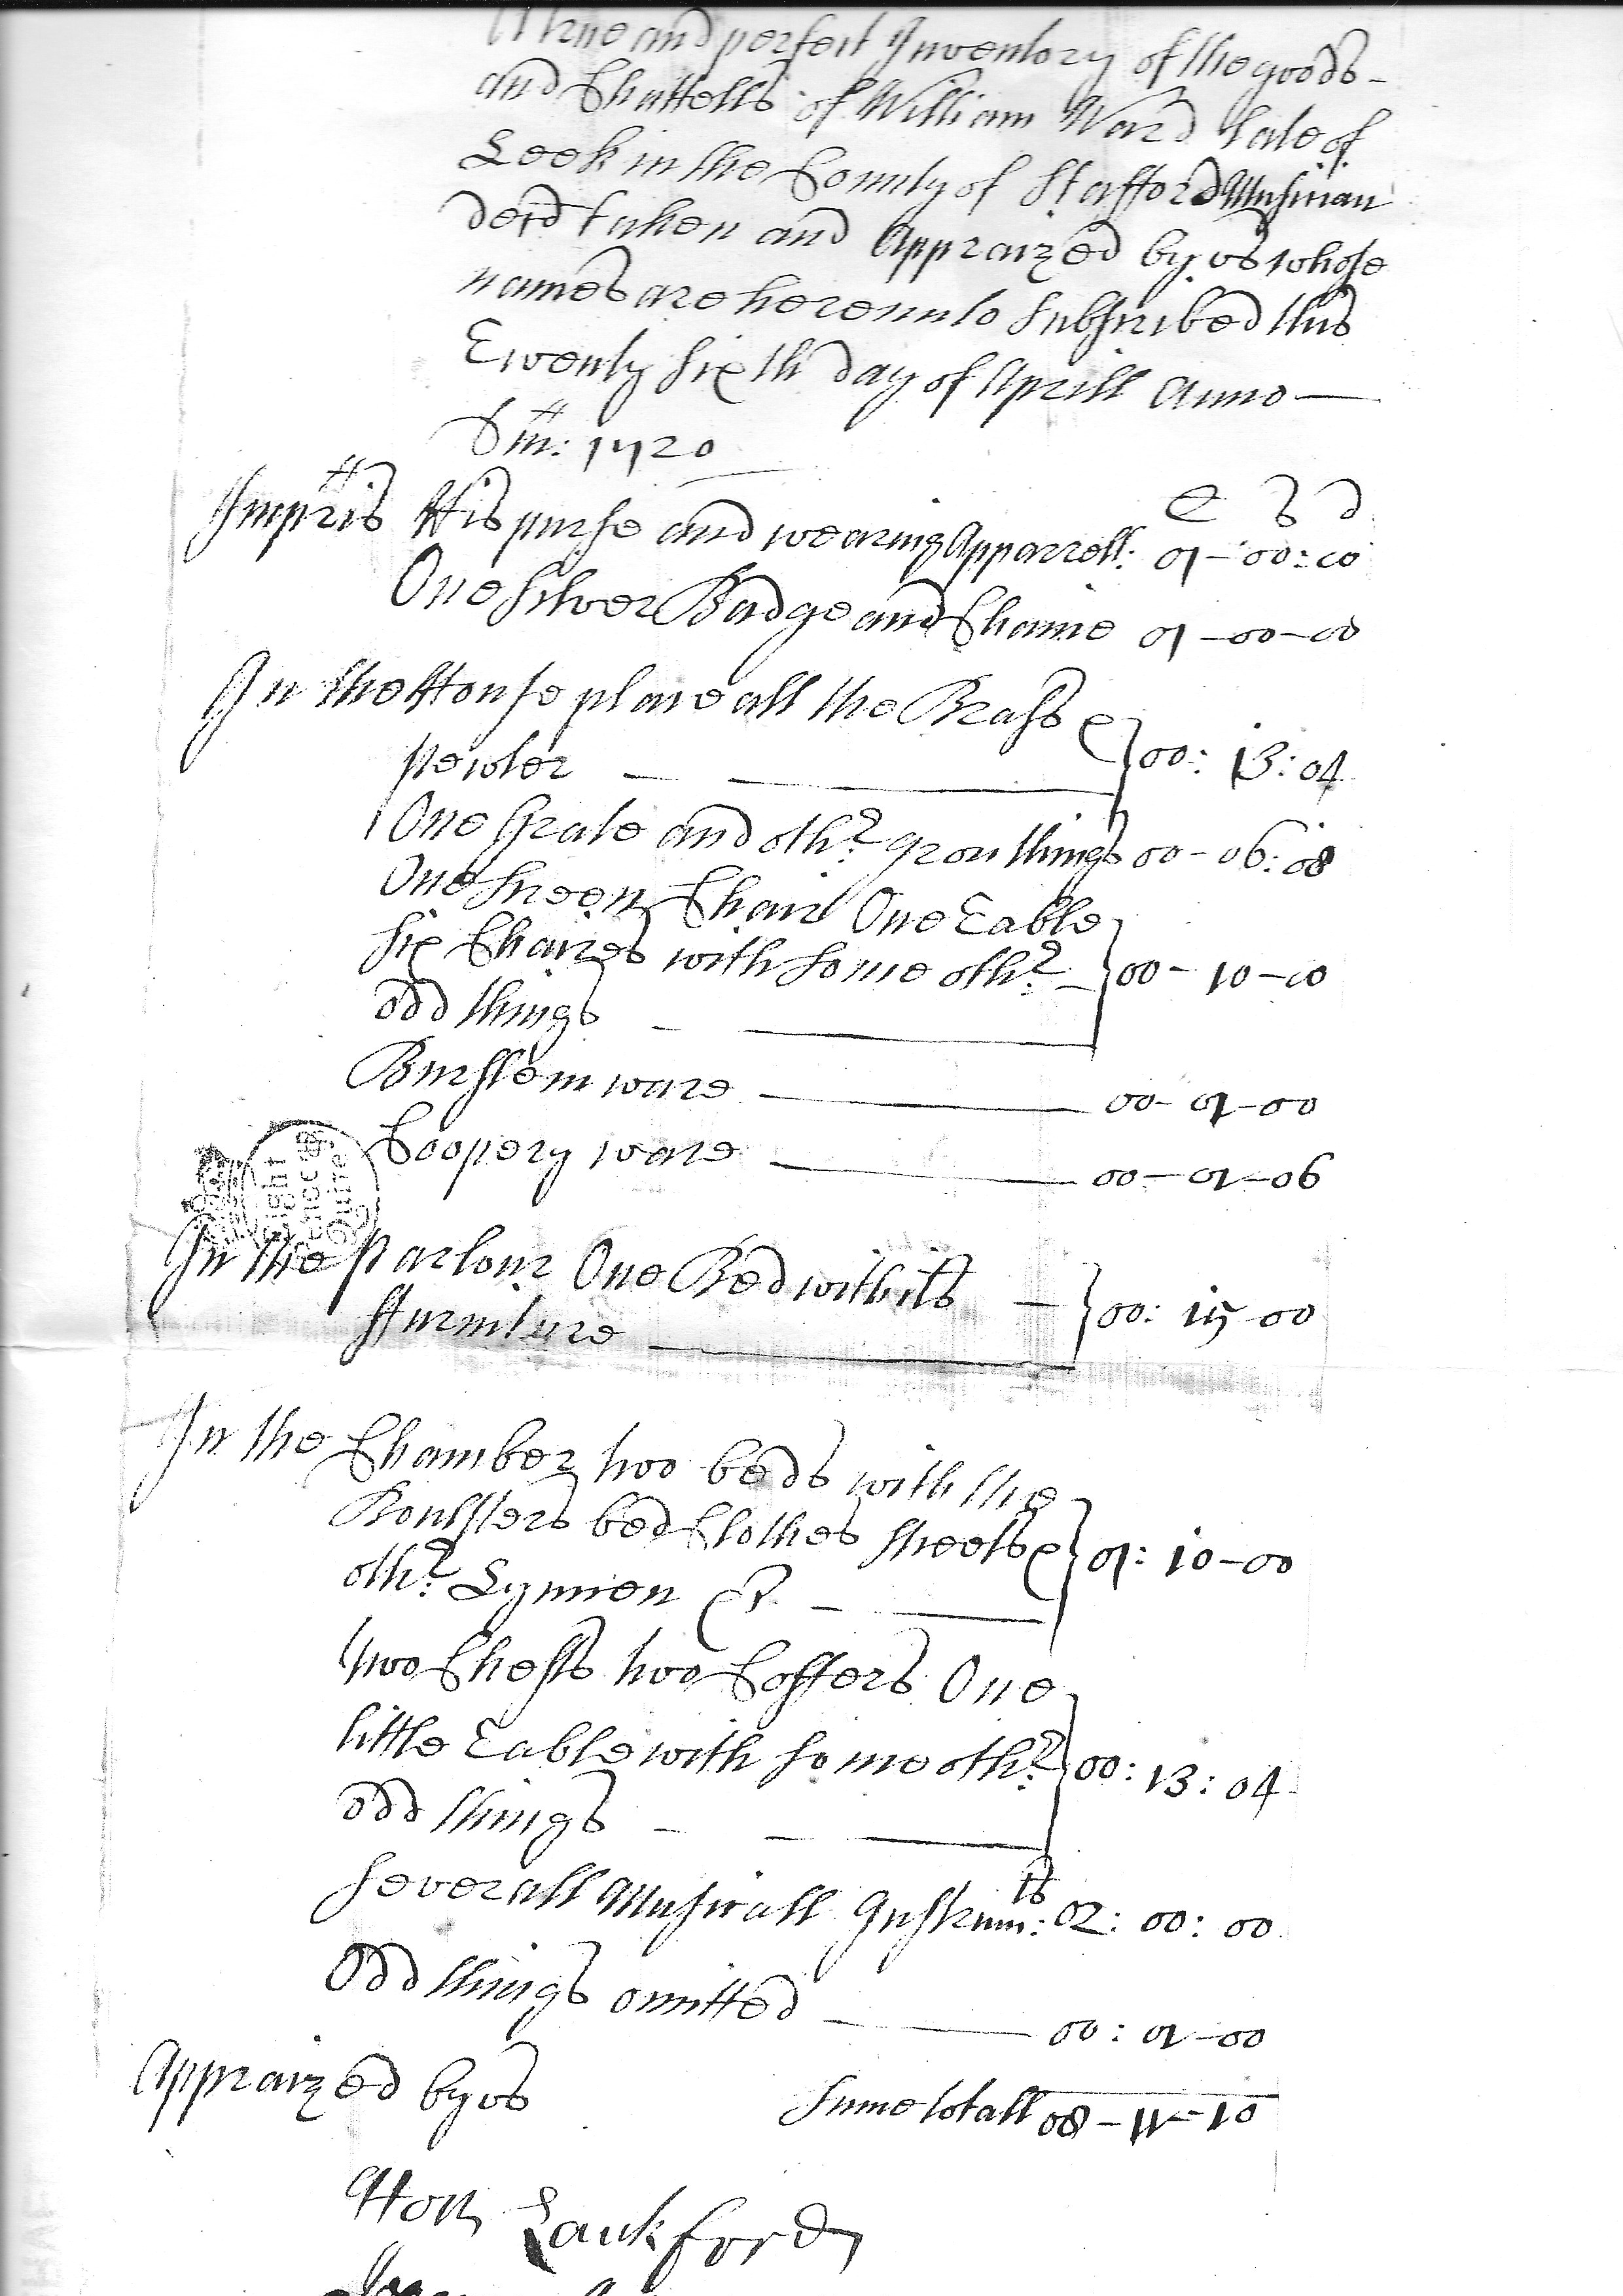 A true and perfect Inventory of the goods -
and Chattells of William Ward late of
Leek in the County of Stafford Musician
decd taken and Appraized by us whose
names are hereunto Subscribed this
Twenty sixth day of Aprill Anno —
Dm: 1720
£ s d
Impris His purse and wearing Apparrell: 01-00:00
One silver Badge and Chaine 01-00-00
In the House place all the Brass &
pewter — — } 00: 13: 04
One Grate and othr: Iron things 00-06:08
One Skreen Chair One Table
six Chaires with some othr: - } 00-10-00
odd things — —
Burslem ware — 00-01-00
Coopery ware — 00-01-06
In the parlour One Bed with its — } 00: 15-00
ffurniture —
In the Chamber two beds with the
Boulsters bed Clothes sheets & } 01: 10-00
othr: Lynnen &c - —
two Chests two Coffers One
little Table with some othr: } 00: 13: 04
odd things - - —
severall Musicall Instrumts: 02: 00: 00
Odd things omitted — 00: 01-00
Appraized by us
sume totall 08-11-10
Lankford